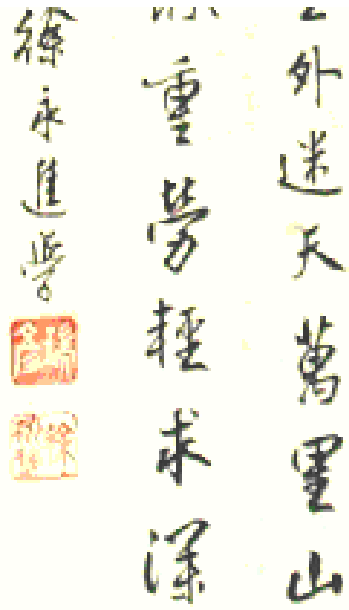 外迷天萬里山
重勞輕求深
徐永進學